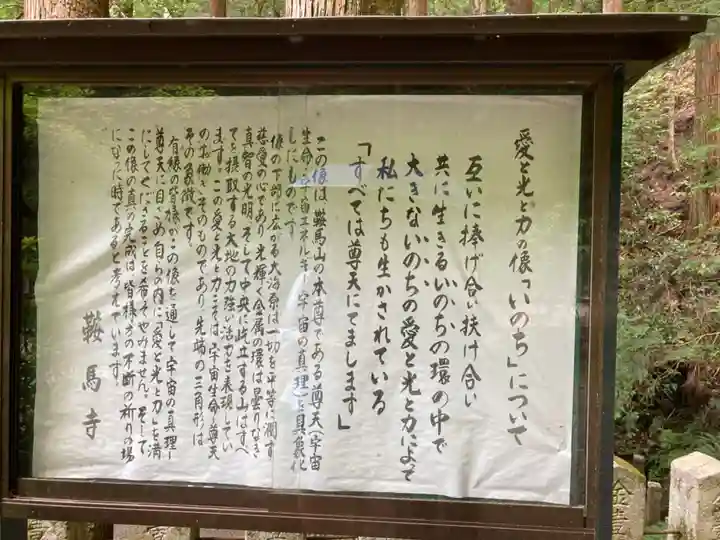 愛と光と力の像「いのち」について
互いに捧げ合い扶け合い
共に生きるいのちの環の中で
大きないのちの愛と光と力によって
私たちも生かされている
「すべては尊天にてまします」
この像は鞍馬山の本尊である尊天（宇宙
生命・宇宙エネルギー・宇宙の真理）を具象化
したものです。
像の下部に広がる大海原は一切を平等に潤す
慈愛の心であり、光輝く金属の環は曇りなき
真智の光明、そして中央に屹立する山はすべ
てを摂取する大地の力強い活力を表現してい
ます。この愛と光と力こそは、宇宙生命・尊天
のお働きそのものであり、先端の三角形は
その象徴です。
有縁の皆様がこの像を通して宇宙の真理－
尊天に目ざめ自らの内に「愛と光と力」を満
にしてくださることを希ってやみません。そして
この像の真の完成は皆様方の不断の祈りの場
になった時であると考えています。
鞍馬寺